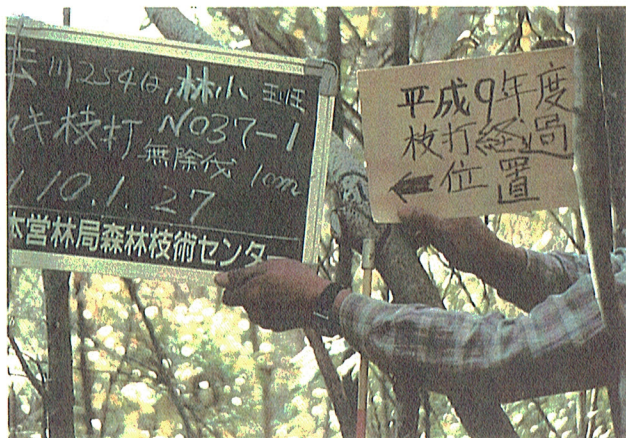 川254は,林小班
キ枝打 NO37-1
無除伐 1cm
10.1.27
営林局森林技術センタ
平成9年度
枝打経過
←位置